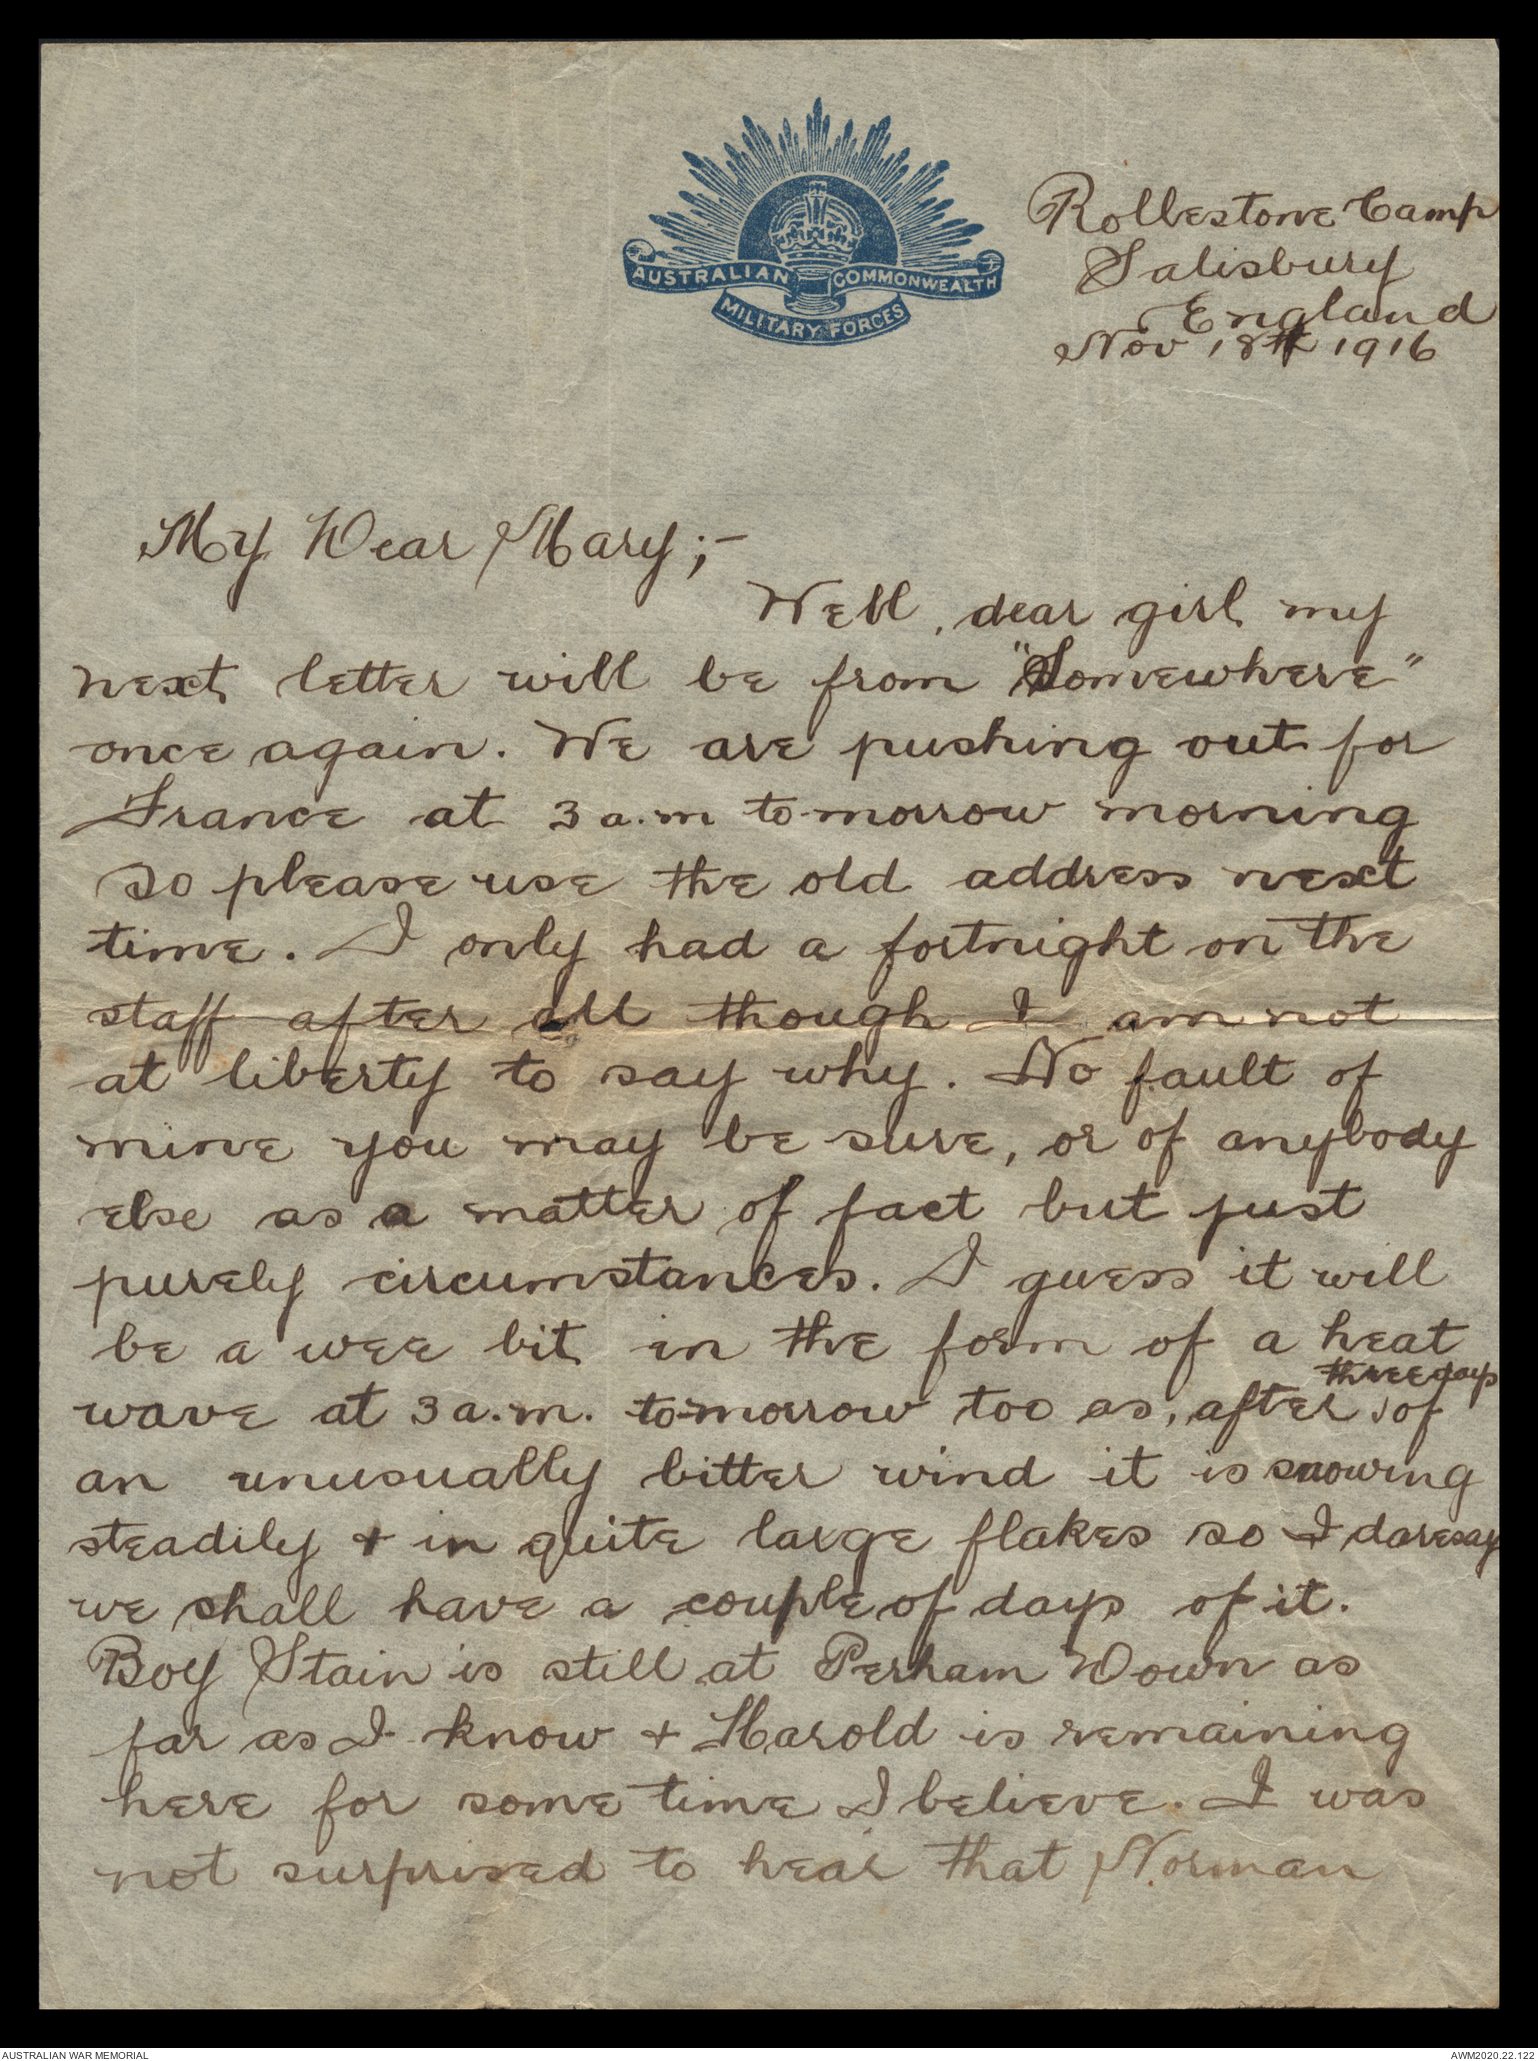 AUSTRALIAN COMMONWEALTH
MILITARY FORCES
Rollestone Camp
Salisbury
England
Nov 18th 1916
My Dear Mary;-
Well, dear girl, my
next letter will be from "Somewhere"
once again. We are pushing out for
France at 3 a.m to-morrow morning
so please use the old address next
time. I only had a fortnight on the
staff after all though I am not
at liberty to say why. No fault of
mine you may be sure, or of anybody
else as a matter of fact but just
purely circumstances. I guess it will
be a wee bit in the form of a heat
wave at 3 a.m. to-morrow too as, after three days of
an unusually bitter wind it is snowing
steadily + in quite large flakes so I daresay
we shall have a couple of days of it.
Boy Stain is still at Perham Down as
far as I know + Harold is remaining
here for some time I believe. I was
not surprised to hear that Norman
AUSTRALIAN WAR MEMORIAL
AWM2020.22.122